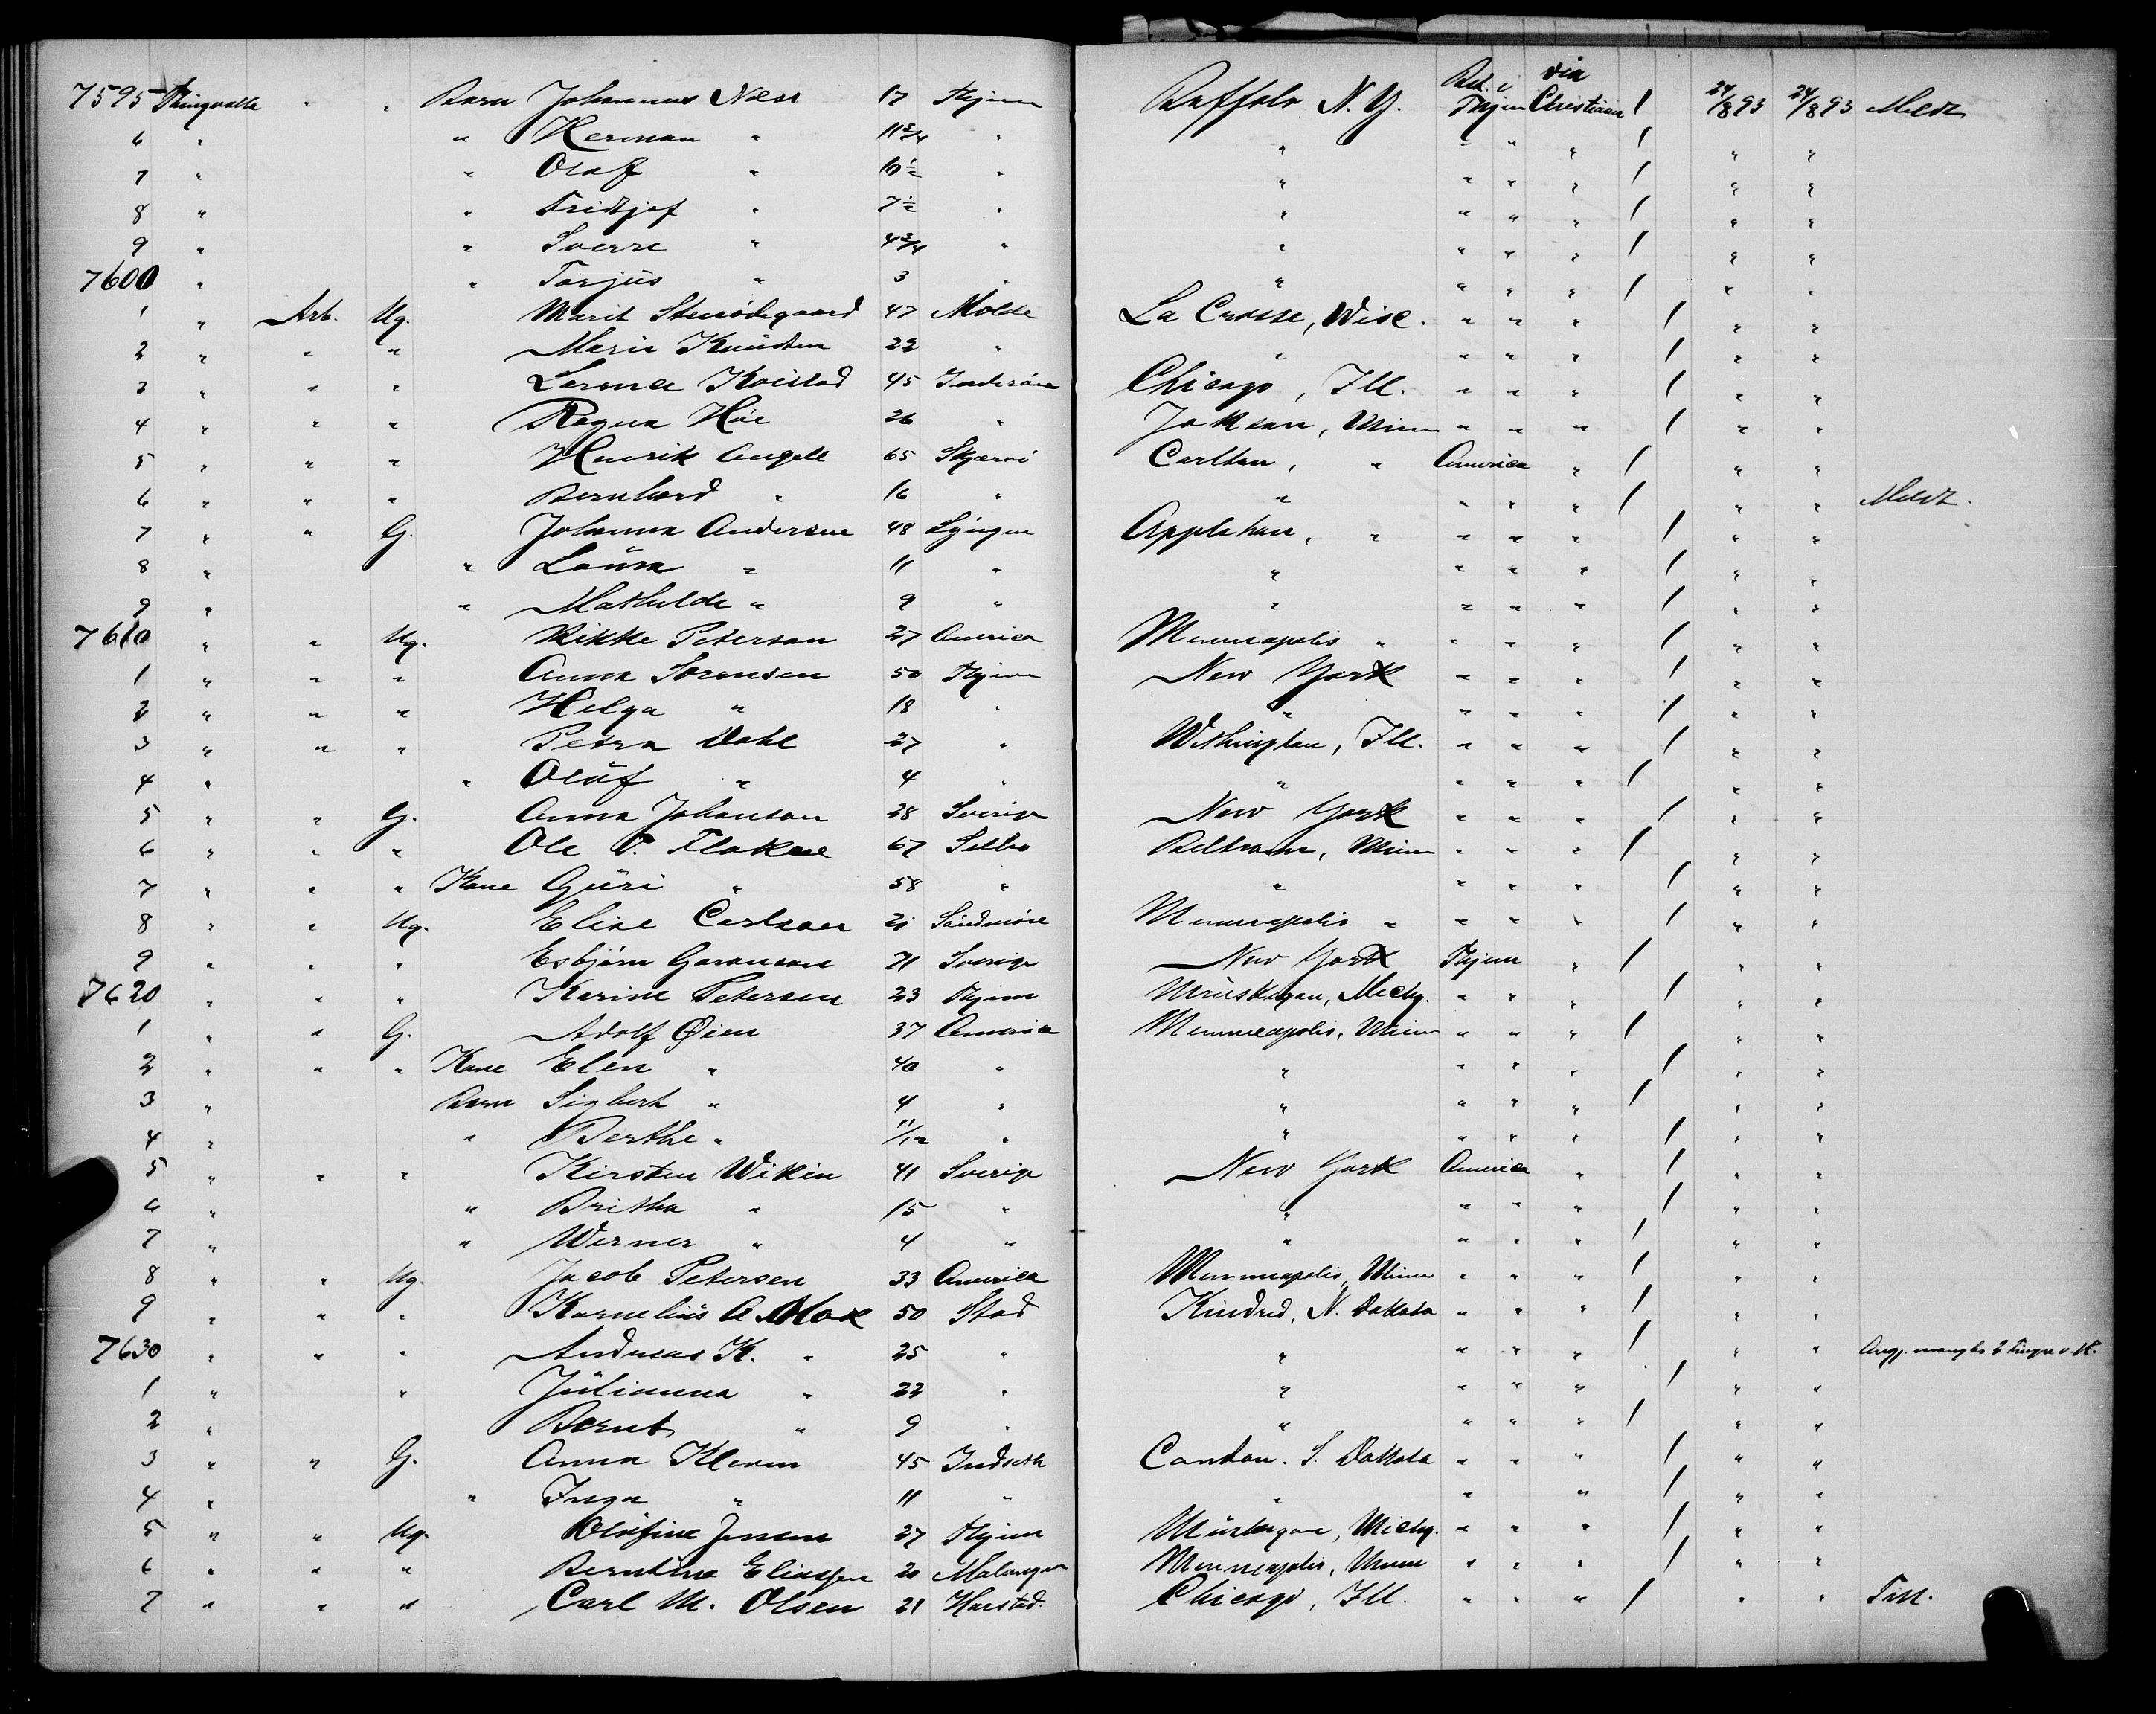 7595 Thingvalla " " Barn Johannes Næss 17 Thjem Buffalo N. Y. Bet. i Thjem via Christiania / 24/8 93 24/8 93 Meldt
6 " " Herman " 11 3/4 " " " " " / " "
7 " " Olaf " 10 1/2 " " " " " / " "
8 " " Fridtjof " 7 1/2 " " " " " / " "
9 " " Sverre " 4 3/4 " " " " " / " "
7600 " " Torjus " 3 " " " " " / " "
1 " Arb. Ug. Marit 47 Molde La Crosse, Wisc. " " " / " "
2 " " " Marie Knudsen 22 " " " " " / " "
3 " " " Lorence Kvistad 45 Inderøen Chicago, Ill. " " " / " "
4 " " " Ragna Høe 26 " Jakson, Minn " " " / " "
5 " " " Henrik Angell 65 Skjærvø Carlton, " America " / " "
6 " " " Bernhard " 16 " " " " " / " " Meldt.
7 " " G. Johanna Andersen 48 Lyngen Appletown, " " " " / " "
8 " " Laura " 11 " " " " " / " "
9 " " Mathilde " 9 " " " " " / " "
7610 " " Ug. Rikke Peterson 27 America Minneapolis " " " " / " "
1 " " " Anna Sorensen 50 Thjem New York " " " / " "
2 " " " Helga " 18 " " " " " / " "
3 " " " Petra Dahl 27 " Ill. " " " / " "
4 " " Olaf " 4 " " " " " / " "
5 " " G. Anna Johanson 28 Sverige New York " " " / " "
6 " " " Ole T. Flakne 67 Selbo Beltram, Minn " " " / " "
7 " " " Kone Guri " 58 " " " " " / " "
8 " " Ug. Elise Carlson 21 Søndmøre Minneapolis " " " " / " "
9 " " " Esbjørn Goranson 71 Sverige New York Thjem " / " "
7620 " " " Karine Petersen 23 Thjem Muskegon, Michg. " " " / " "
1 " " G. Adolf Øien 37 America Minneapolis, Minn " " " / " "
2 " " " Kone Elen " 40 " " " " " / " "
3 " Barn Sigbert " 4 " " " " " / " "
4 " " Berthe " 11/12 " " " " " / " "
5 " " " Kirsten Wikin 41 Sverige New York America " / " "
6 " " Britha " 15 " " " " " / " "
7 " " Werner " 4 " " " " " / " "
8 " " Ug. Jacob Petersen 33 America Minneapolis, Minn " " " / " "
9 " " " Kornelius A. Mok 50 Stod Kindred, N. Dakota " " " / " "
7630 " " " Andreas K. " 25 " " " " " / " "
1 " " Julianna " 22 " " " " " / " "
2 " Bernt " 9 " " " " " / " "
3 " " G. Anna Kleven 45 Indseth Canton. S. Dakota " " " / " "
4 " " Inga " 11 " " " " / " "
5 " " Ug. Olufine Jensen 27 Thjem Muskegon, Michg. " " " / " "
6 " " " Berntine Eliassen 20 Malangen Minneapolis, Minn " " " / " "
7 " " " Carl M. Olsen 21 Harstad. Chicago, Ill. " " " / " "